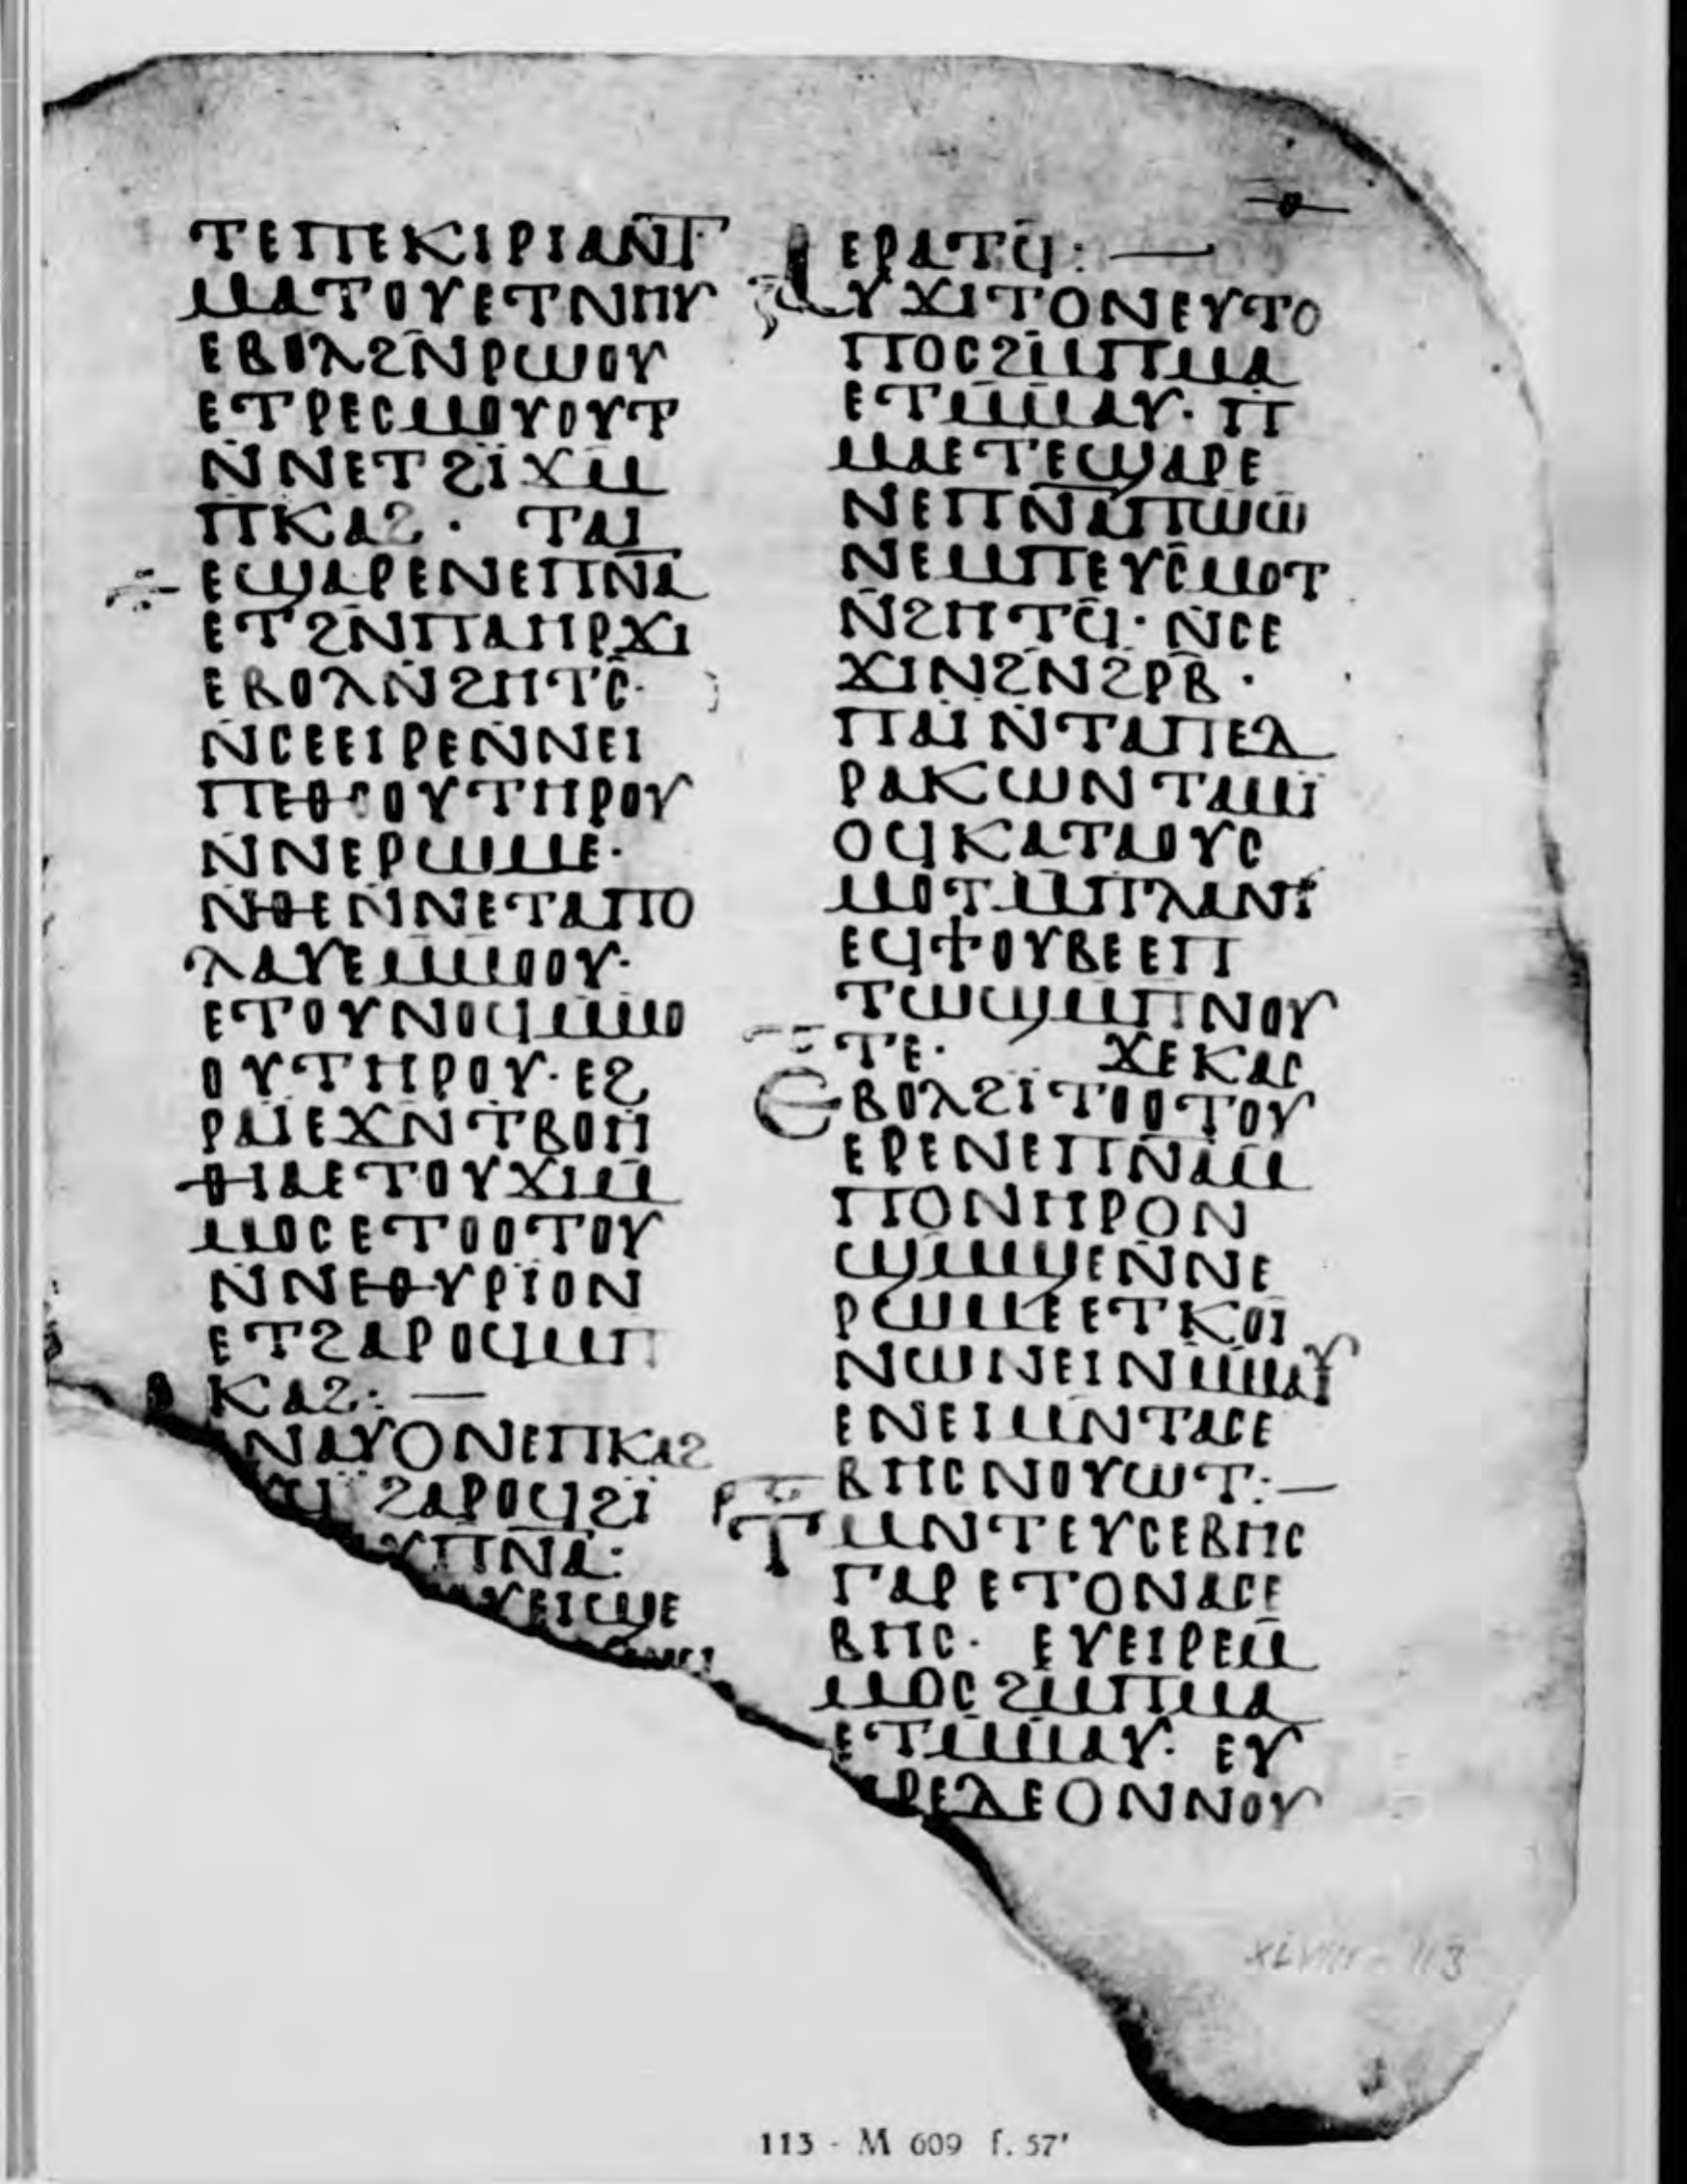 ⲑ
ⲧⲉⲡⲉⲕⲓⲣⲓⲁⲛⲧ̅
ⲙⲁⲧⲟⲩⲉⲧⲛⲏⲩ
ⲉⲃⲟⲗϩⲛ̄ⲣⲱⲟⲩ
ⲉⲧⲣⲉⲥⲙⲟⲩⲟⲩⲧ
ⲛ̄ⲛⲉⲧϩⲓϫⲙ̄
ⲡⲕⲁϩ· ⲧⲁⲓ
ⲉϣⲁⲣⲉⲛⲉⲡⲛ̅ⲁ̅
ⲉⲧϩⲛ̄ⲡⲁⲏⲣϫⲓ
ⲉⲃⲟⲗⲛ̄ϩⲏⲧⲥ̄·
ⲛ̄ⲥⲉⲉⲓⲣⲉⲛ̄ⲛⲉⲓ
ⲡⲉⲑⲟⲟⲩⲧⲏⲣⲟⲩ
ⲛ̄ⲛⲉⲣⲱⲙⲉ·
ⲛ̄ⲑⲉⲛ̄ⲛⲉⲧⲁⲡⲟ
ⲗⲁⲩⲉⲙ̄ⲙⲟⲟⲩ·
ⲉⲧⲟⲩⲛⲟϥⲙ̄ⲙⲟ
ⲟⲩⲧⲏⲣⲟⲩ· ⲉϩ
ⲣⲁⲓⲉϫⲛ̄ⲧⲃⲟⲏ
ⲑⲓⲁⲉⲧⲟⲩϫⲓⲙ̄
ⲙⲟⲥⲉⲧⲟⲟⲧⲟⲩ
ⲛ̄ⲛⲉⲑⲩⲣⲓⲟⲛ
ⲉⲧϩⲁⲣⲟϥⲙ̄ⲡ
ⲕⲁϩ: —
ⲛⲁⲩⲟⲛⲉⲡⲕⲁϩ
ϥ ϩⲁⲣⲟϥϩⲓ̈
ⲩⲡⲛ̅ⲁ̅:
ⲩⲉⲓϣⲉ
ⲉⲣⲁⲧϥ̄: —
ⲁⲩϫⲓⲧⲟⲛⲉⲩⲧⲟ
ⲡⲟⲥϩⲙ̄ⲡⲙⲁ
ⲉⲧⲙ̄ⲙⲁⲩ· ⲡ
ⲙⲁⲉⲧⲉϣⲁⲣⲉ
ⲛⲉⲡⲛ̅ⲁ̅ⲡⲱⲱ
ⲛⲉⲙ̄ⲡⲉⲩⲥ̄ⲙⲟⲧ
ⲛ̄ϩⲏⲧϥ̄· ⲛ̄ⲥⲉ
ϫⲓⲛϩⲛ̄ϩⲣⲃ̄·
ⲡⲁⲓ̈ⲛ̄ⲧⲁⲡⲉⲇ
ⲣⲁⲕⲱⲛⲧⲁⲙⲓ̈
ⲟϥⲕⲁⲧⲁⲟⲩⲥ
ⲙⲟⲧⲙ̄ⲡⲗⲁⲛⲏ
ⲉϥϯⲟⲩⲃⲉⲉⲡ
ⲧⲱϣⲙ̄ⲡⲛⲟⲩ
ⲧⲉ· ϫⲉⲕⲁⲥ
ⲉⲃⲟⲗϩⲓⲧⲟⲟⲧⲟⲩ
ⲉⲣⲉⲛⲉⲡⲛ̅ⲁ̅ⲙ̄
ⲡⲟⲛⲏⲣⲟⲛ
ϣⲙ̄ϣⲉⲛ̄ⲛⲉ
ⲣⲱⲙⲉⲉⲧⲕⲟⲓ
ⲛⲱⲛⲉⲓⲛⲙ̄ⲙⲁⲩ
ⲉⲛⲉⲓⲙⲛ̄ⲧⲁⲥⲉ
ⲃⲏⲥⲛⲟⲩⲱⲧ: —
ⲧⲙⲛ̄ⲧⲉⲩⲥⲉⲃⲏⲥ
ⲅⲁⲣⲉⲧⲟⲛⲁⲥⲉ
ⲃⲏⲥ· ⲉⲩⲉⲓⲣⲉⲙ̄
ⲙⲟⲥϩⲙ̄ⲡⲙⲁ
ⲉⲧⲙ̄ⲙⲁⲩ· ⲉⲩ
ⲣⲉⲗⲉⲟⲛⲛⲟⲩ
XLVIII - 113
113 - M 609 f. 57'